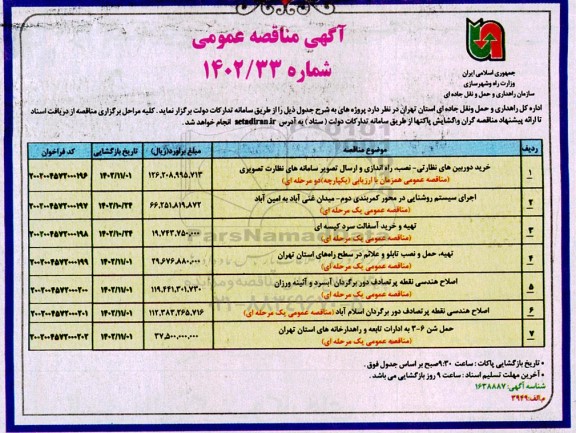 آگهی مناقصه عمومی
شماره ۱۴۰۲/۳۳
جمهوری اسلامی ایران
وزارت راه وشهرسازی
سازمان راهداری و حمل و نقل جاده ای
اداره کل راهداری و حمل ونقل جاده ای استان تهران در نظر دارد پروژه های به شرح جدول ذیل را از طریق سامانه تدارکات دولت برگزار نماید. کلیه مراحل برگزاری مناقصه از دریافت اسناد
تا ارائه پیشنهاد مناقصه گران وگشایش پاکتها از طریق سامانه تدارکات دولت ( ستاد ) به آدرس setadiran.ir انجام خواهد شد.
ردیف موضوع مناقصه مبلغ برآورد(ریال) تاریخ بازگشایی کد فراخوان
۱ خرید دوربین های نظارتی- نصب، راه اندازی و ارسال تصویر سامانه های نظارت تصویری ۱۲۶.۲۰۸.۹۹۵.۷۱۳ ۱۴۰۲/۱۱/۰۱ ۲۰۰۲۰۰۴۵۷۲۰۰۰۱۹۶
(مناقصه عمومی همزمان با ارزیابی (یکپارچه)دو مرحله ای)
۲ اجرای سیستم روشنایی در محور کمربندی دوم- میدان غنی آباد به امین آباد ۶۶.۲۵۱.۸۱۹.۸۷۲ ۱۴۰۲/۱۰/۲۴ ۲۰۰۲۰۰۴۵۷۲۰۰۰۱۹۷
(مناقصه عمومی یک مرحله ای)
۳ تهیه و خرید آسفالت سرد کیسه ای ۱۹.۷۴۳.۷۵۰.۰۰۰ ۱۴۰۲/۱۰/۲۴ ۲۰۰۲۰۰۴۵۷۲۰۰۰۱۹۸
(مناقصه عمومی یک مرحله ای)
۴ تهیه، حمل و نصب تابلو و علائم در سطح راه‌های استان تهران ۲۹.۶۷۶.۸۸۰.۰۰۰ ۱۴۰۲/۱۱/۰۱ ۲۰۰۲۰۰۴۵۷۲۰۰۰۱۹۹
(مناقصه عمومی یک مرحله ای)
۵ اصلاح هندسی نقطه پر تصادف دور برگردان آبسرد و آئینه ورزان ۱۱۹.۴۴۱.۳۰۱.۷۳۰ ۱۴۰۲/۱۱/۰۱ ۲۰۰۲۰۰۴۵۷۲۰۰۰۲۰۰
(مناقصه عمومی یک مرحله ای)
۶ اصلاح هندسی نقطه پر تصادف دور برگردان اسلام آباد (مناقصه عمومی یک مرحله ای) ۱۱۲.۳۸۳.۲۶۵.۷۱۶ ۱۴۰۲/۱۱/۰۱ ۲۰۰۲۰۰۴۵۷۲۰۰۰۲۰۱
۷ حمل شن ۶-۳ به ادارات تابعه و راهدارخانه های استان تهران ۳۷.۵۰۰.۰۰۰.۰۰۰ ۱۴۰۲/۱۱/۰۱ ۲۰۰۲۰۰۴۵۷۲۰۰۰۲۰۲
(مناقصه عمومی یک مرحله ای)
• تاریخ بازگشایی پاکات : ساعت ۹:۳۰صبح بر اساس جدول فوق .
• آخرین مهلت تسلیم اسناد : ساعت ۹ روز بازگشایی می باشد .
شناسه آگهی: ۱۶۳۸۸۸۷
م.الف: ۳۹۴۹